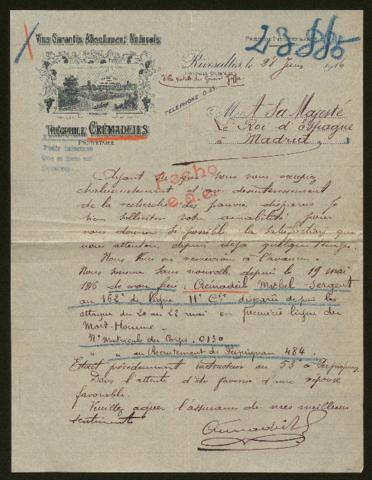 Vins Garantis Absolument Naturels
23886
Rivesaltes, le 28 Juin 1916
(Pyrénées Orientales)
TÉLÉPHONE 0.23
THÉOPHILE CRÉMADEILS
PROPRIÉTAIRE
À Sa Majesté
Roi d'Espagne
à Madrid
Ayant lu que vous vous occupiez
et avec désintéressement
de la recherche des pauvres disparus je
viens solliciter votre amabilité pour
nous donner si possible la satisfaction que
nous attendons depuis déjà quelque temps.
Fecho
Nous vous en remercions à l'avance.
Nous sommes sans nouvelle depuis le 19 mai
1916 de mon frère Crémadeils Michel Sergent
au 162e de ligne 11e Cie disparu depuis les
attaques du 20 au 22 mai en première ligne du
Mort-Homme.
No Matricule du Corps 0130
" " au Recrutement de Perpignan 484
Etait précédemment instructeur au 53e à Perpignan
Dans l'attente d'être favorisé d'une réponse
favorable.
Veuillez agréer l'assurance de mes meilleurs
sentiments
Crémadeils